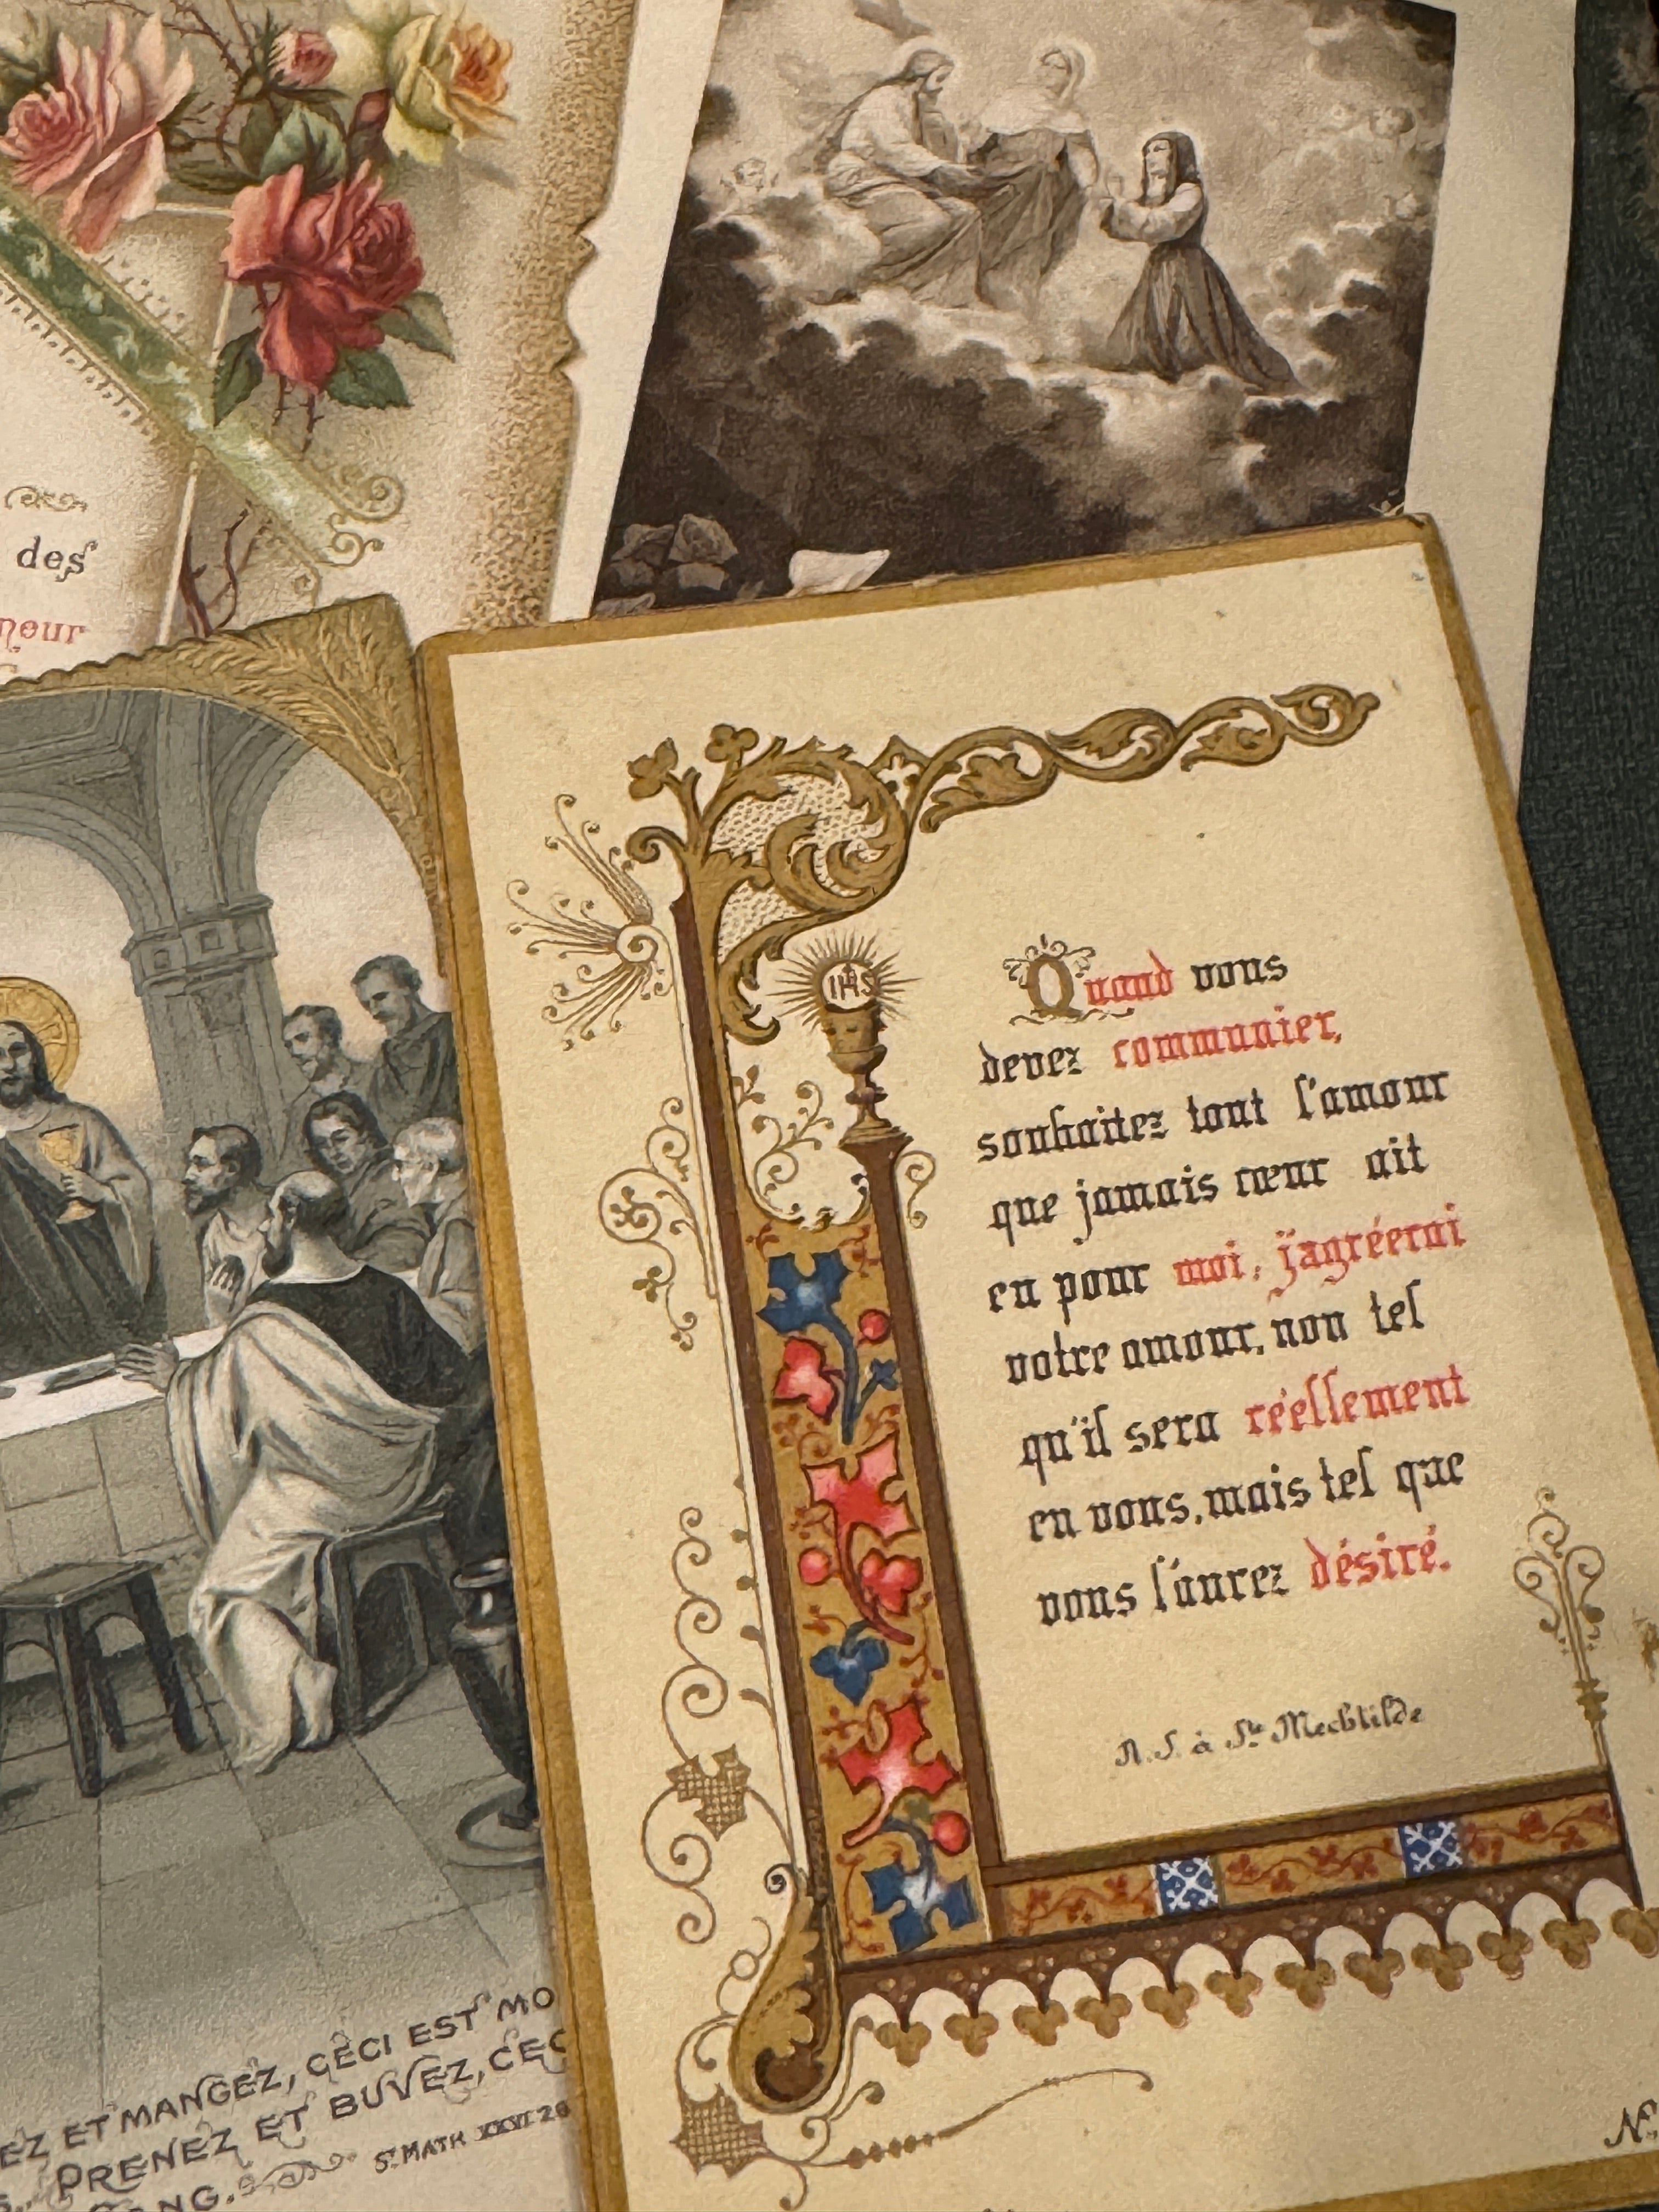 des
neur
IHS
Quand vous
devez communier,
souhaitez tout l'amour
que jamais cœur ait
eu pour moi, j'agréerai
votre amour, non tel
qu'il sera réellement
en vous, mais tel que
vous l'aurez désiré.
N. S. à Ste Mechtilde
EZ ET MANGEZ, CECI EST MO
PRENEZ ET BUVEZ, CEC
NG.
St MATH XXVI 26
N.